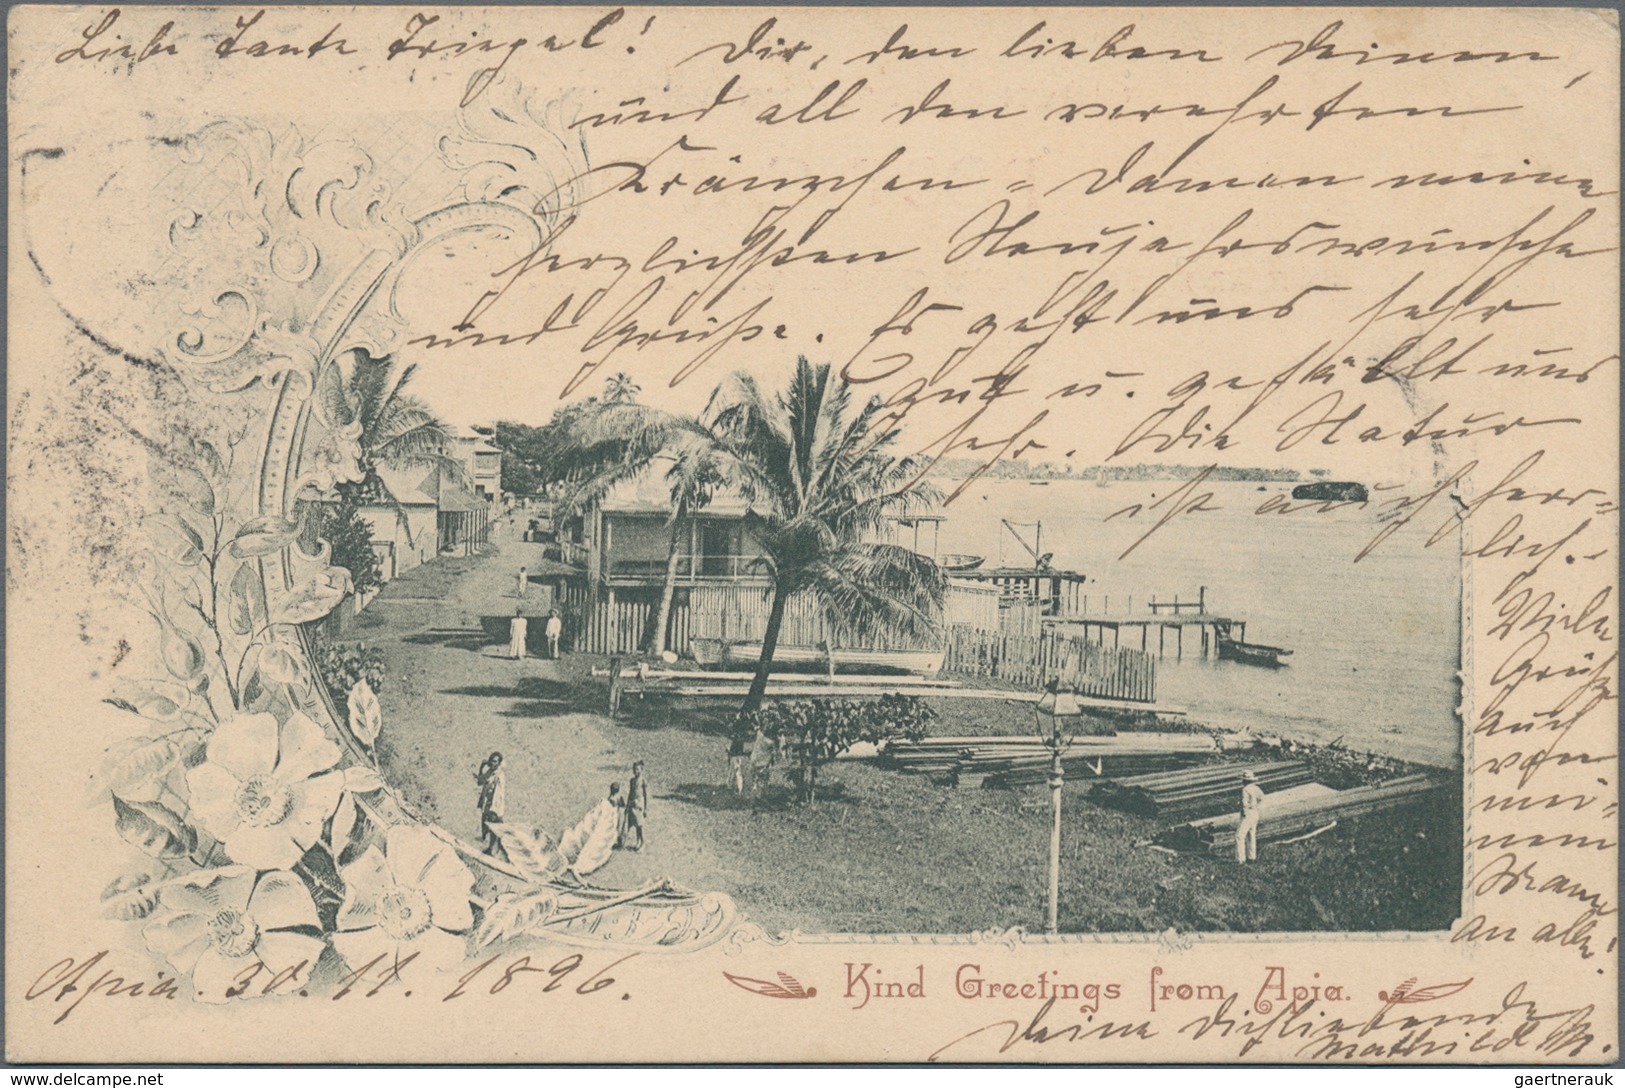 Liebe Tante Triepel! Dir, den lieben Deinen,
und all den verehrten
Kränzchen=Damen meine
herzlichsten Neujahrswünsche
und Grüße. Es geht uns sehr
gut u. gefällt uns
sehr. Die Natur
ist auch herr=
lich.-
Viele
Grüße
auch
von
mei=
nem
Mann
an alle!
Apia. 30. 11. 1896.
Kind Greetings from Apia.
Deine Dichliebende
Mathilde M.
© www.delcampe.net
gaertnerauk